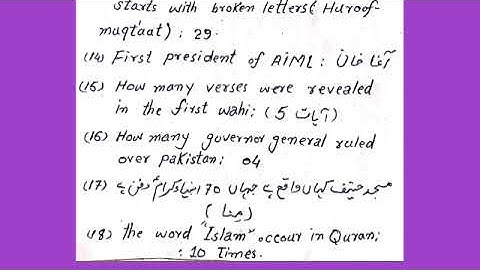 starts with broken letters ( Huroof-
muqtaat) : 29.
(14) First president of AIML : آغا خان
(15) How many verses were revealed
in the first wahi; ( 5 آیات )
(16) How many governor general ruled
over pakistan; 04
(17) مسجد حنیف کہاں واقع ہے جہاں 70 انبیاء کرام دفن ہے
( مِنا )
(18) the word "Islam" occur in Quran;
: 10 Times.